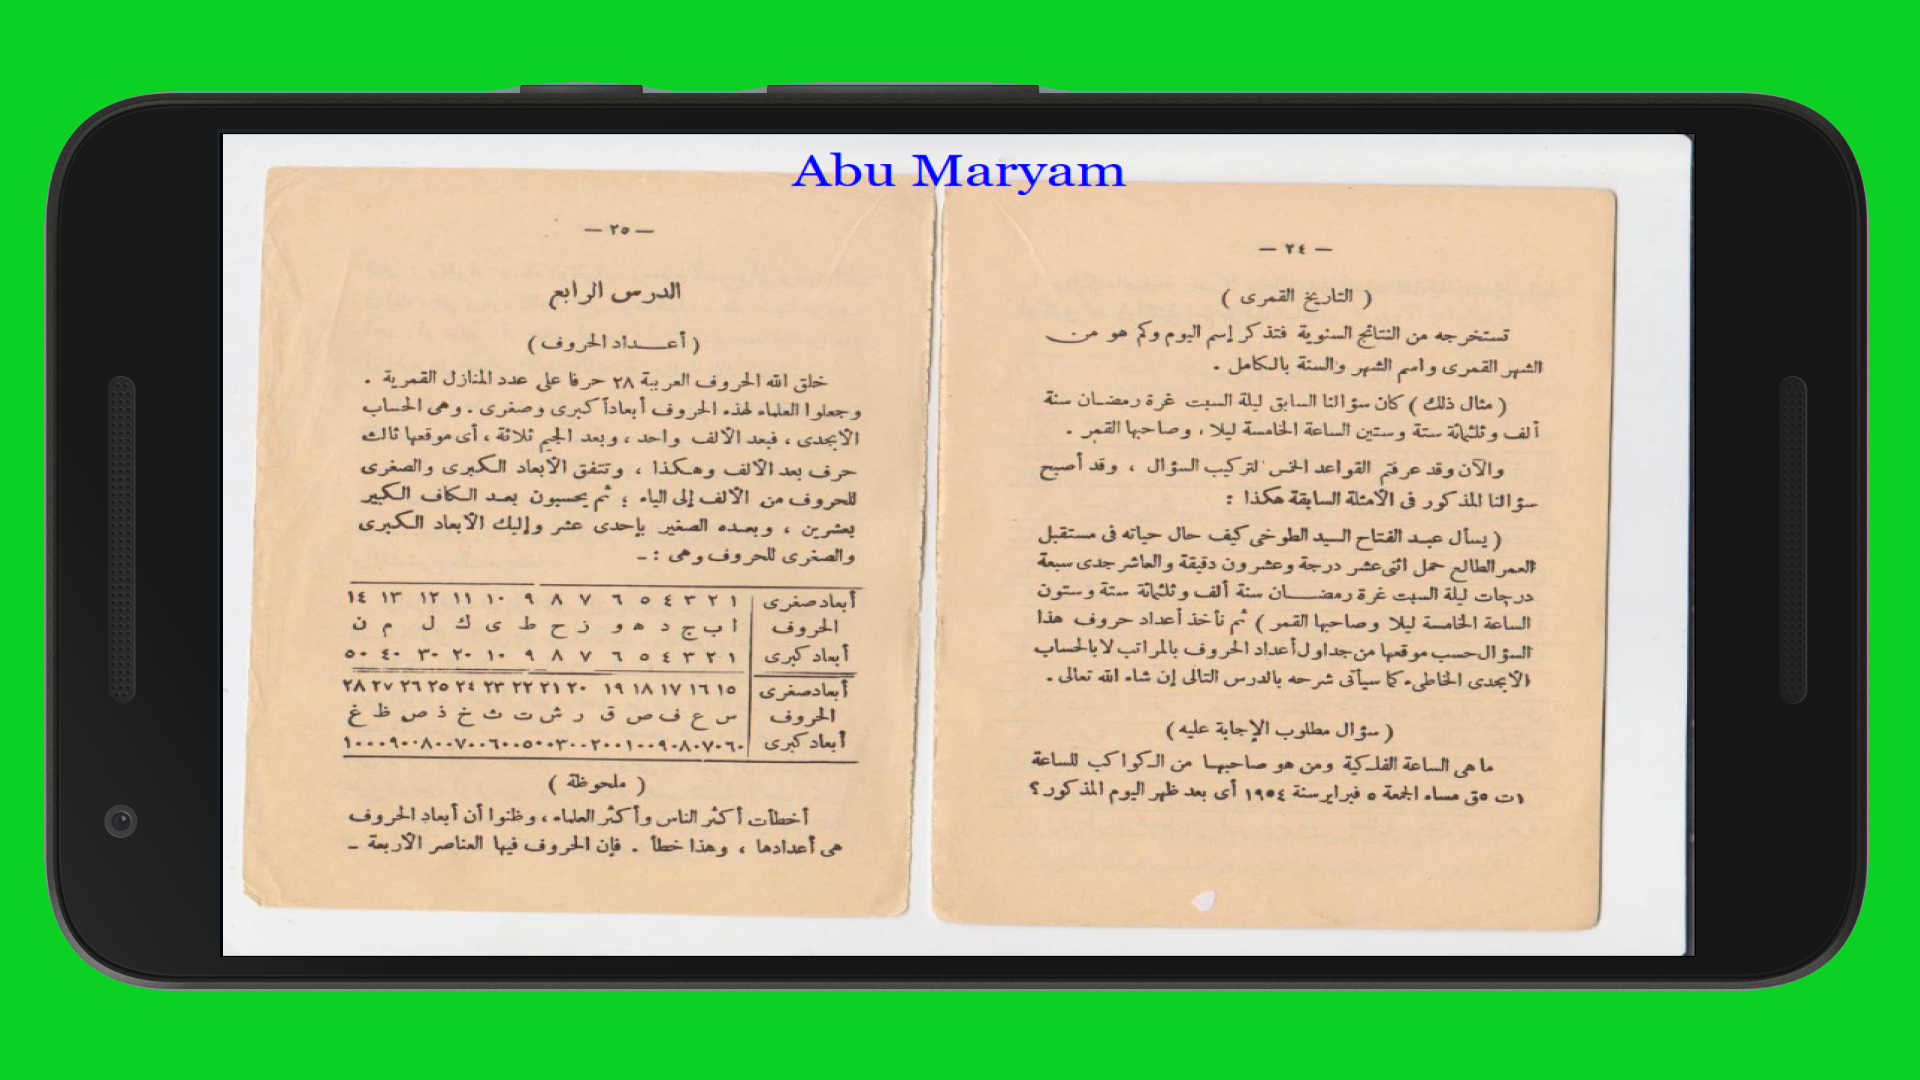 Abu Maryam
— ٢٤ —
( التاريخ القمرى )
تستخرجه من النتائج السنوية فتذكر إسم اليوم وكم هو من
الشهر القمرى واسم الشهر والسنة بالكامل .
( مثال ذلك ) كان سؤالنا السابق ليلة السبت غرة رمضان سنة
ألف وثلثمائة ستة وستين الساعة الخامسة ليلا ، وصاحبها القمر .
والآن وقد عرفتم القواعد الخمس لتركيب السؤال ، وقد أصبح
سؤالنا المذكور فى الأمثلة السابقة هكذا :
( يسأل عبد الفتاح السيد الطوخى كيف حال حياته فى مستقبل
العمر الطالع حمل اثنى عشر درجة وعشرون دقيقة والعاشر جدى سبعة
درجات ليلة السبت غرة رمضان سنة ألف وثلثمائة ستة وستون
الساعة الخامسة ليلا وصاحبها القمر ) ثم نأخذ أعداد حروف هذا
السؤال حسب موقعها من جداول أعداد الحروف بالمراتب لا بالحساب
الأبجدى الخاطىء كما سيأتى شرحه بالدرس التالى إن شاء الله تعالى .
( سؤال مطلوب الإجابة عليه )
ما هى الساعة الفلكية ومن هو صاحبها من الكواكب للساعة
١ت ٥ق مساء الجمعة ٥ فبراير سنة ١٩٥٤ أى بعد ظهر اليوم المذكور ؟
— ٢٥ —
الدرس الرابع
( أعداد الحروف )
خلق الله الحروف العربية ٢٨ حرفا على عدد المنازل القمرية .
وجعلوا العلماء لهذه الحروف أبعاداً كبرى وصغرى . وهى الحساب
الأبجدى ، فبعد الألف واحد ، وبعد الجيم ثلاثة ، أى موقعها ثالث
حرف بعد الألف وهكذا ، وتتفق الأبعاد الكبرى والصغرى
للحروف من الألف إلى الياء ؛ ثم يحسبون بعد الكاف الكبير
بعشرين ، وبعده الصغير بإحدى عشر وإليك الأبعاد الكبرى
والصغرى للحروف وهى : –
أبعاد صغرى ١ ٢ ٣ ٤ ٥ ٦ ٧ ٨ ٩ ١٠ ١١ ١٢ ١٣ ١٤
الحروف ا ب ج د ه و ز ح ط ى ك ل م ن
أبعاد كبرى ١ ٢ ٣ ٤ ٥ ٦ ٧ ٨ ٩ ١٠ ٢٠ ٣٠ ٤٠ ٥٠
أبعاد صغرى ١٥ ١٦ ١٧ ١٨ ١٩ ٢٠ ٢١ ٢٢ ٢٣ ٢٤ ٢٥ ٢٦ ٢٧ ٢٨
الحروف س ع ف ص ق ر ش ت ث خ ذ ض ظ غ
أبعاد كبرى ٦٠ ٧٠ ٨٠ ٩٠ ١٠٠ ٢٠٠ ٣٠٠ ٥٠٠ ٦٠٠ ٧٠٠ ٨٠٠ ٩٠٠ ١٠٠٠
( ملحوظة )
أخطأت أكثر الناس وأكثر العلماء ، وظنوا أن أبعاد الحروف
هى أعدادها ، وهذا خطأ . فإن الحروف فيها العناصر الأربعة –